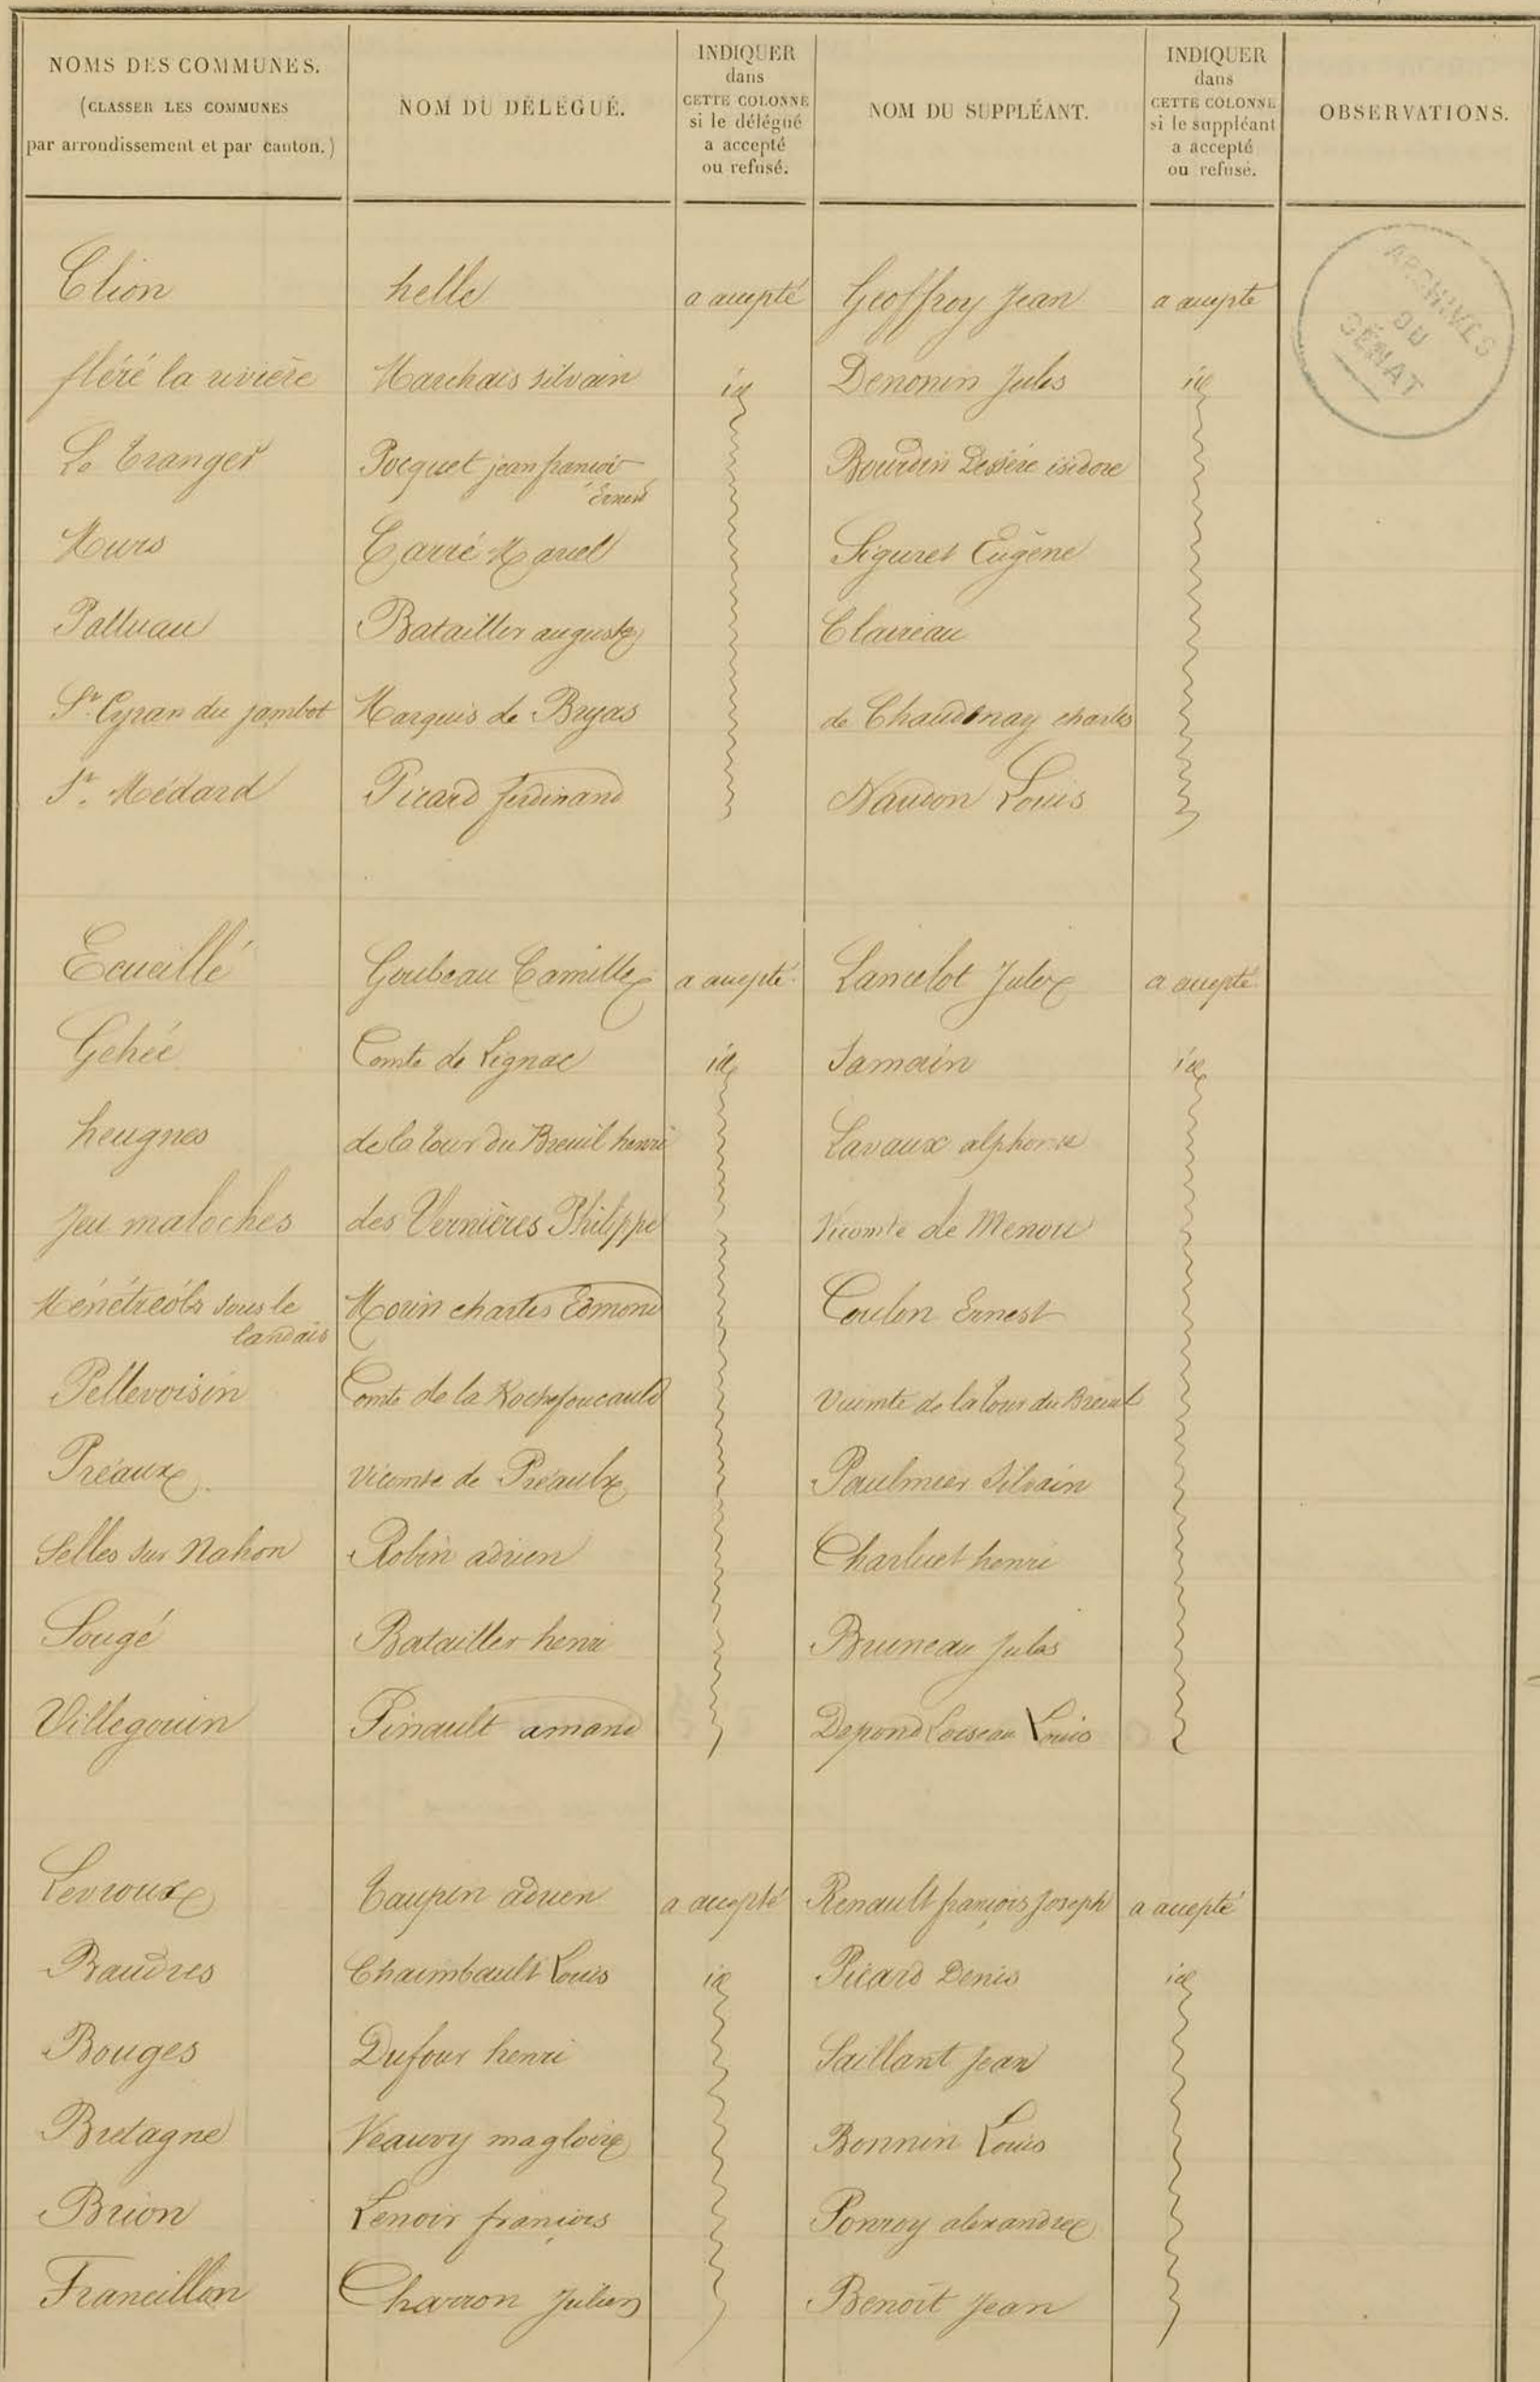 NOMS DES COMMUNES.
(CLASSER LES COMMUNES
par arrondissement et par canton.)
NOM DU DÉLÉGUÉ.
INDIQUER
dans
CETTE COLONNE
si le délégué
a accepté
ou refusé.
NOM DU SUPPLÉANT.
INDIQUER
dans
CETTE COLONNE
si le suppléant
a accepté
ou refusé.
OBSERVATIONS.
ARCHIVES
DU
SÉNAT
Clion helle a accepté Geoffroy Jean a accepté
fléré la rivière Marchais silvain id Denonin Jules id
Le Tranger Pocquet jean françois
Ernest
Bourdin Désiré isidore
Murs Carré Marcel Siguret Eugène
Palluau Batailler auguste Claireau
St. Cyran du jambot Marquis de Bryas de Chaudenay charles
St. Médard Picard ferdinand Naudon Louis
Ecueillé Goubeau Camille a accepté Lancelot Jules a accepté
Gehée Comte de Lignac id Samain id
heugnes de la tour du Breuil henri Lavaux alphonse
Jeu maloches des Vernières Philippe Vicomte de Menou
Ménétréols sous le
landais
Morin charles Edmond Coulon Ernest
Pellevoisin Comte de la Rochefoucauld Vicomte de la tour du Breuil
Préaux Vicomte de Préaulx Paulmier Silvain
Selles sur Nahon Robin adrien Charluet henri
Sougé Batailler henri Bruneau Jules
Villegouin Pinault amand Depond Loiseau Louis
Levroux Taupin adrien a accepté Renault françois Joseph a accepté
Baudres Chaimbault Louis id Picard Denis id
Bouges Dufour henri Saillant Jean
Bretagne Veauvy magloire Bonnin Louis
Brion Lenoir françois Ponroy alexandre
Francillon Charron Julien Benoît Jean